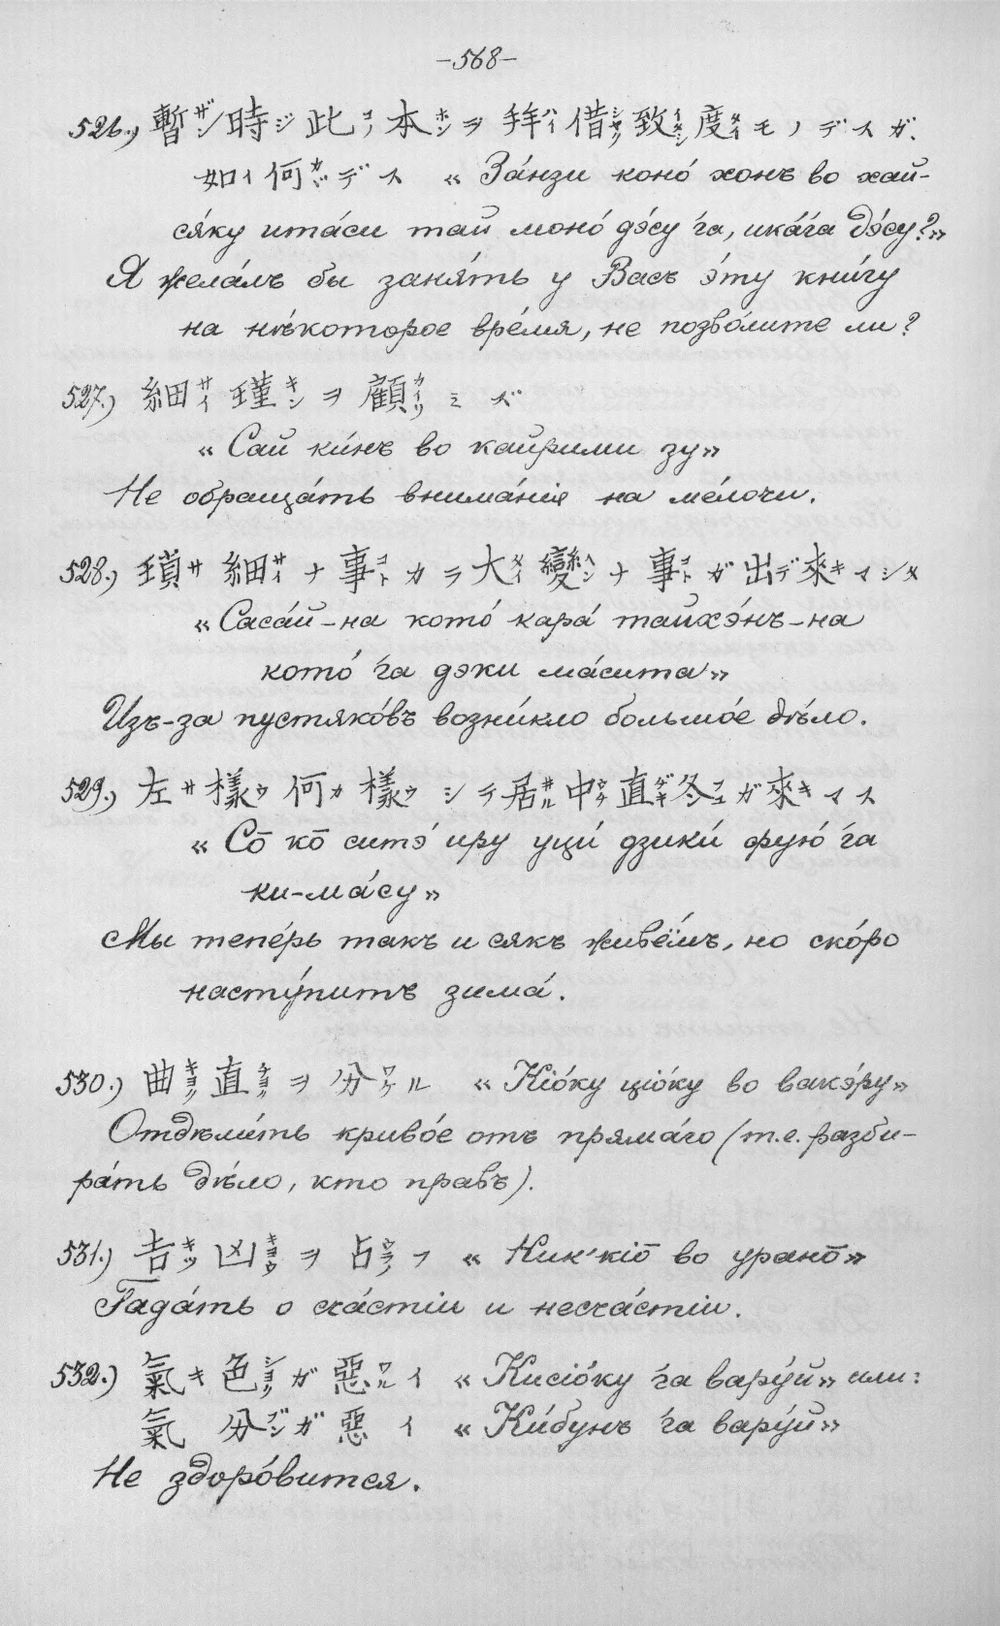 –568–
526.) 暫ザン時ジ此コノ本ホンヲ拜ハイ借シャク致イタシ度タイモノデスガ、
如イ何カガデス « За́нзи коно́ хонъ во хай-
ся́ку ита́си тай моно́ дэ́су 'га, ика́'га дэ́су?»
Я желалъ бы заня́ть у Васъ э́ту кни́гу
на нѣкоторое вре́мя, не позво́лите ли?
527.) 細サイ瑾キンヲ顧カイリミズ
« Сай ки́нъ во кайрими зу»
Не обраща́ть внима́нія на ме́лочи.
528.) 瑣サ細サイナ事コトカラ大タイ變ヘンナ事コトガ出デ來キマシタ
« Саса́й-на кото́ кара́ тайхэ́нъ-на
кото́ 'га дэки ма́сита»
Изъ-за пустяко́въ возни́кло большо́е дѣ́ло.
529.) 左サ樣ウ何カ樣ウシテ居ヰル中ウチ直ヂキ冬フユガ來キマス
« Со̄ ко̄ ситэ́ иру уци́ дзики́ фую́ 'га
ки-ма́су»
Мы тепе́рь такъ и сякъ живё́мъ, но ско́ро
насту́питъ зима́.
530.) 曲キョク直チョクヲ分ワケル « Кіо́ку ціо́ку во вакэ́ру»
Отдѣли́ть криво́е отъ пряма́го (т.е. разби-
ра́ть дѣ́ло, кто правъ).
531.) 吉キツ凶キョウヲ占ウラナフ « Кик'кіо̄ во урано̄»
Гада́ть о сча́стіи и несча́стіи.
532.) 氣キ色ショクガ惡ワルイ « Кисіо́ку 'га вару́й» или:
氣 分ブンガ惡イ « Ки́бунъ 'га вару́й»
Не здоро́вится.